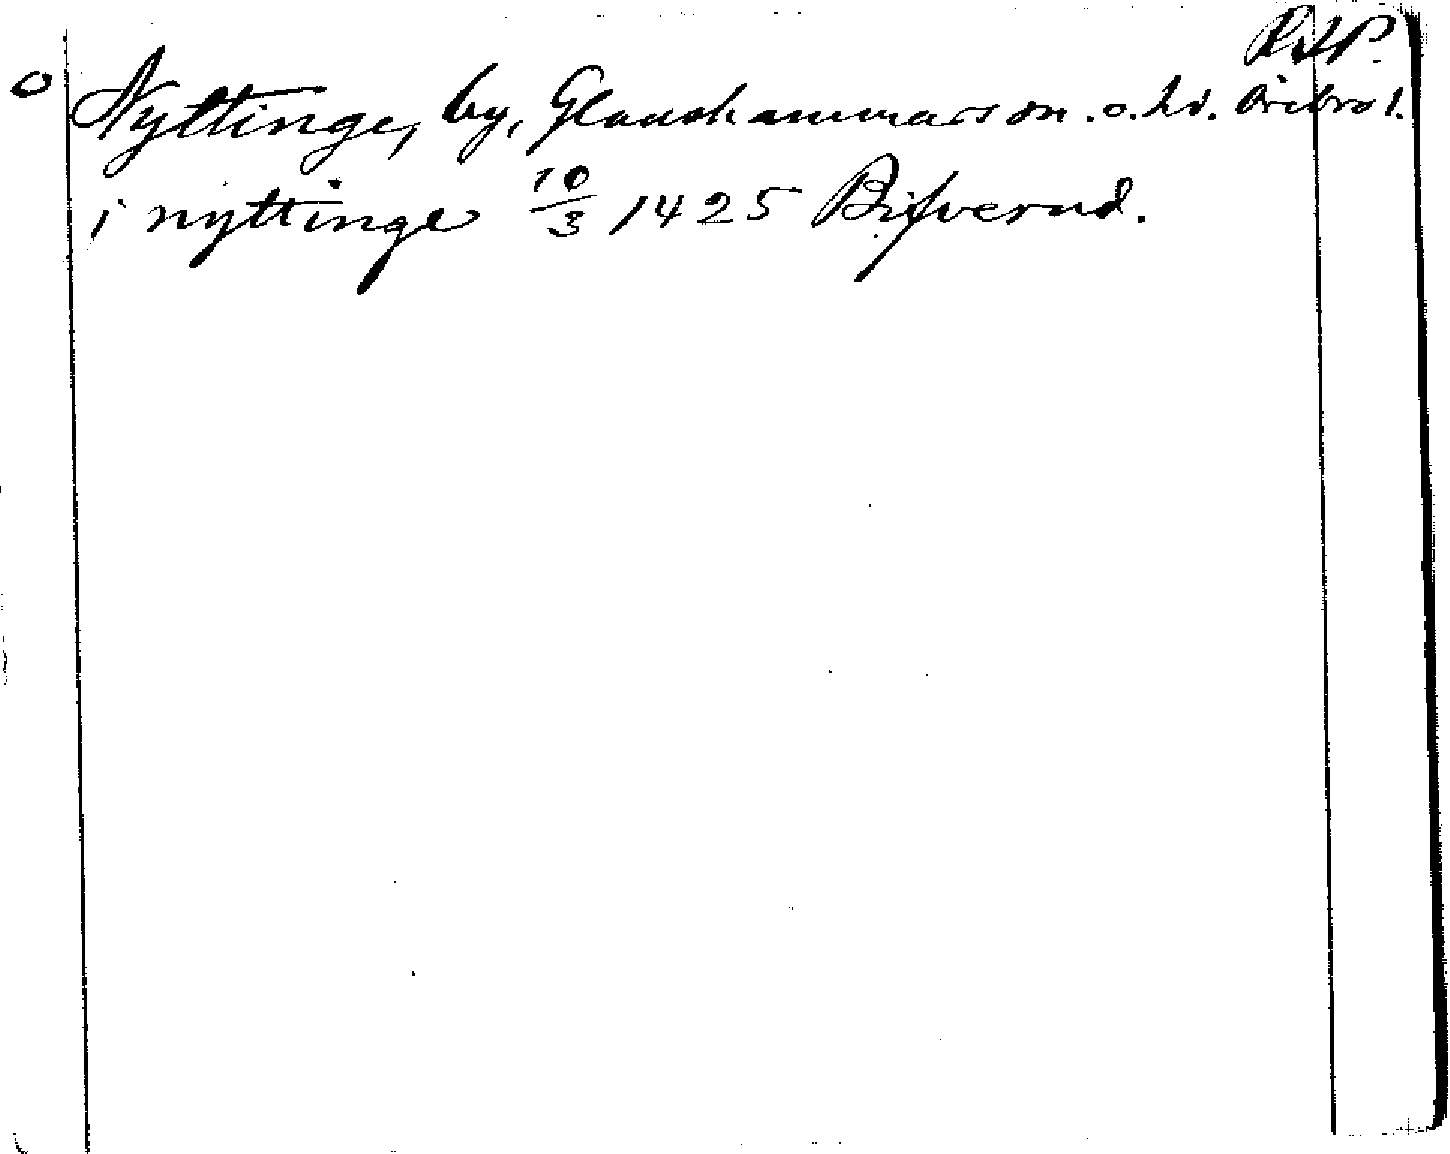 RAP.
o Nyttinge, by, Glanshammars sn. o. hd. Örebro l.
i nyttinge 10/3 1425 Bifverud.